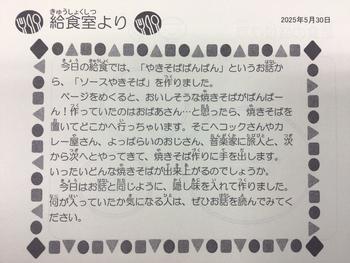 きゅうしょくしつ
給食室より
2025年5月30日
今日の給食では、「やきそばばんばん」というお話か
ら、「ソースやきそば」を作りました。
ページをめくると、おいしそうな焼きそばがばんばー
ん！作っていたのはおばあさん…と思ったら、焼きそばを
置いてどこかへ行っちゃいます。そこへコックさんやカ
レー屋さん、よっぱらいのおじさん、音楽家に旅人と、次
から次へとやってきて、焼きそば作りに手を出します。
いったいどんな焼きそばが出来上がるのでしょうか。
今日はお話と同じように、隠し味を入れて作りました。
何が入っていたか気になる人は、ぜひお話を読んでみてく
ださい。